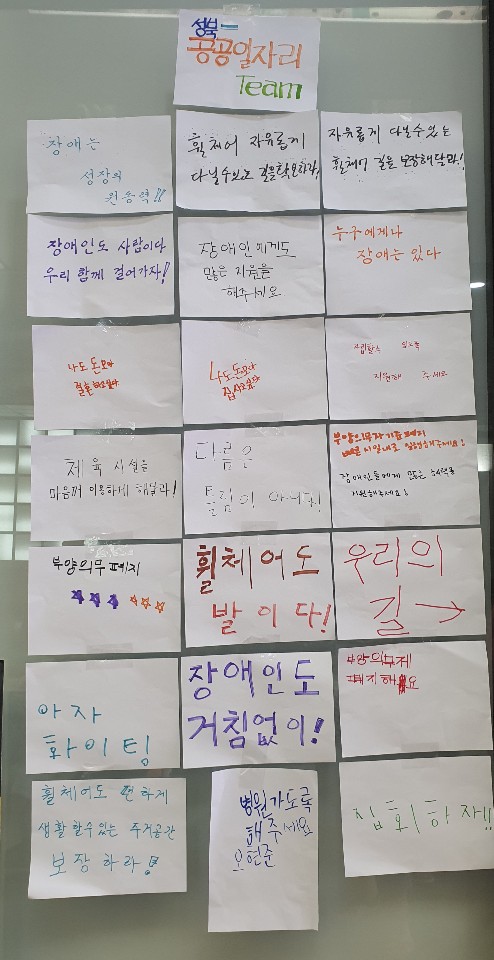 성북-
공공일자리
Team
장애는
성장의
원송력!!
휠체어 자유롭게
다닐수있는 길을확보하라!
자유롭게 다닐수있는
휠체어 길을 보장해달라!
장애인도 사람이다
우리 함께 걸어가자!
장애인에게도
많은 지원을
해주세요
누구에게나
장애는 있다
나도 돈모아
결혼하고싶다
나도돈모아
집사고싶다
자립할수 있도록
지원해 주세요
체육시설을
마음껏 이용하게 해달라!
다름은
틀림이 아니다!
부양의무자기준폐지
빠른시일내로 실행해주세요!
장애인들에게 모든 혜택을
지원해주세요!
부양의무폐지
휠체어도
발이다!
우리의
길→
아자
화이팅
장애인도
거침없이!
부양의무제
폐지해요
휠체어도 편하게
생활 할수있는 주거공간
보장하라!
병원가도록
해주세요
오현준
집회하자!!